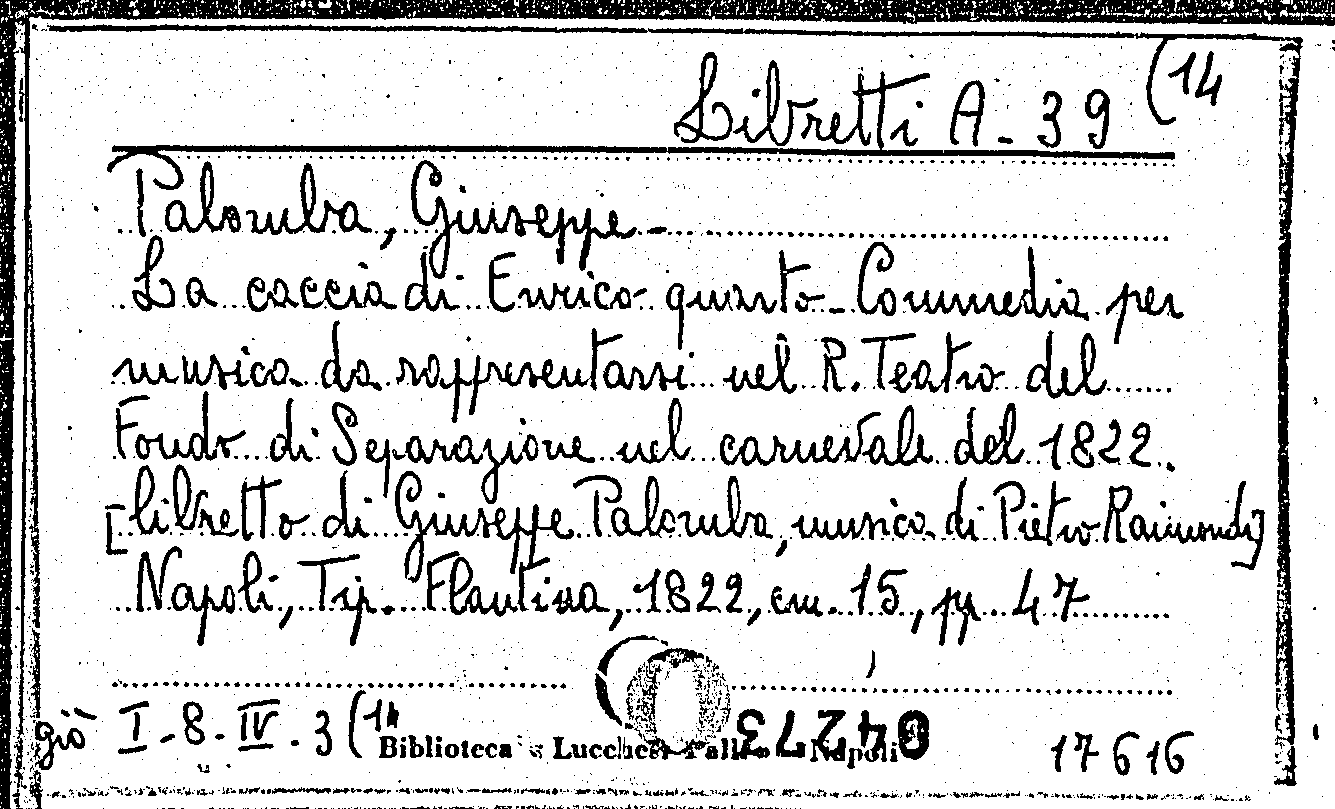 Libretti A - 39 (14
Palomba, Giuseppe -
La caccia di Enrico quarto - Commedia per
musica da rappresentarsi nel R. Teatro del
Fondo di Separazione nel carnevale del 1822.
[libretto di Giuseppe Palomba, musica di Pietro Raimondi]
Napoli, Tip. Flautina, 1822, cm. 15, pp 47
già I - 8 - IV . 3 (14
Biblioteca « Lucchesi Palli » Napoli
17616